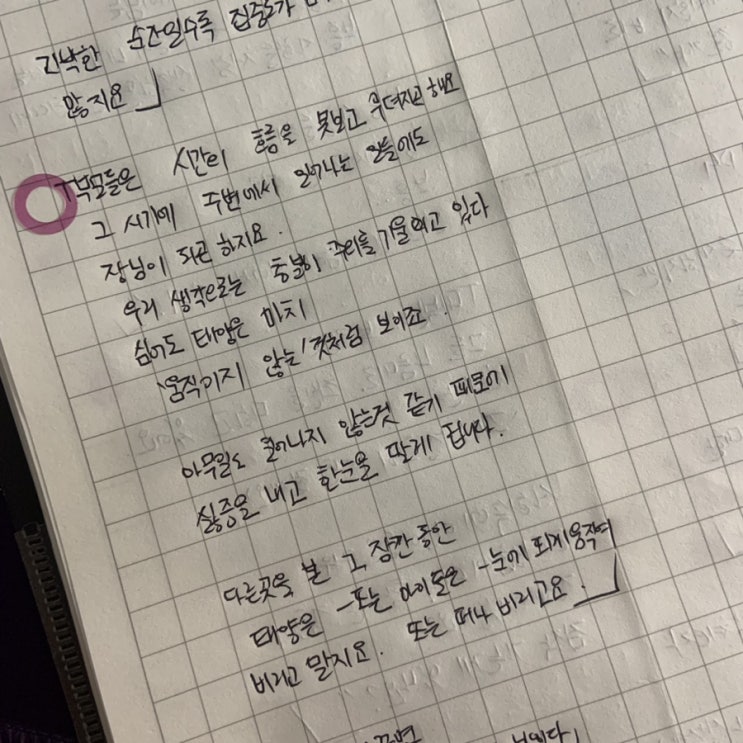 긴박한 순간일수록 집중도가
않지요」
부모들은 시간의 흐름을 못보고 무뎌지고 해요
그 시기에 주변에서 일어나는 일들에도
장님이 되곤 하지요.
우리 생각으로는 충분히 주의를 기울이고 있다
싶어도 태양은 마치
움직이지 않는 것처럼 보이죠.
아무일도 일어나지 않는것 같기 때문에
싫증을 내고 한눈을 팔게 됩니다.
다른곳을 본 그 잠깐 동안
태양은 -또는 아이들은 -눈에 띄게 움직여
버리고 말지요. 또는 떠나 버리고요.」